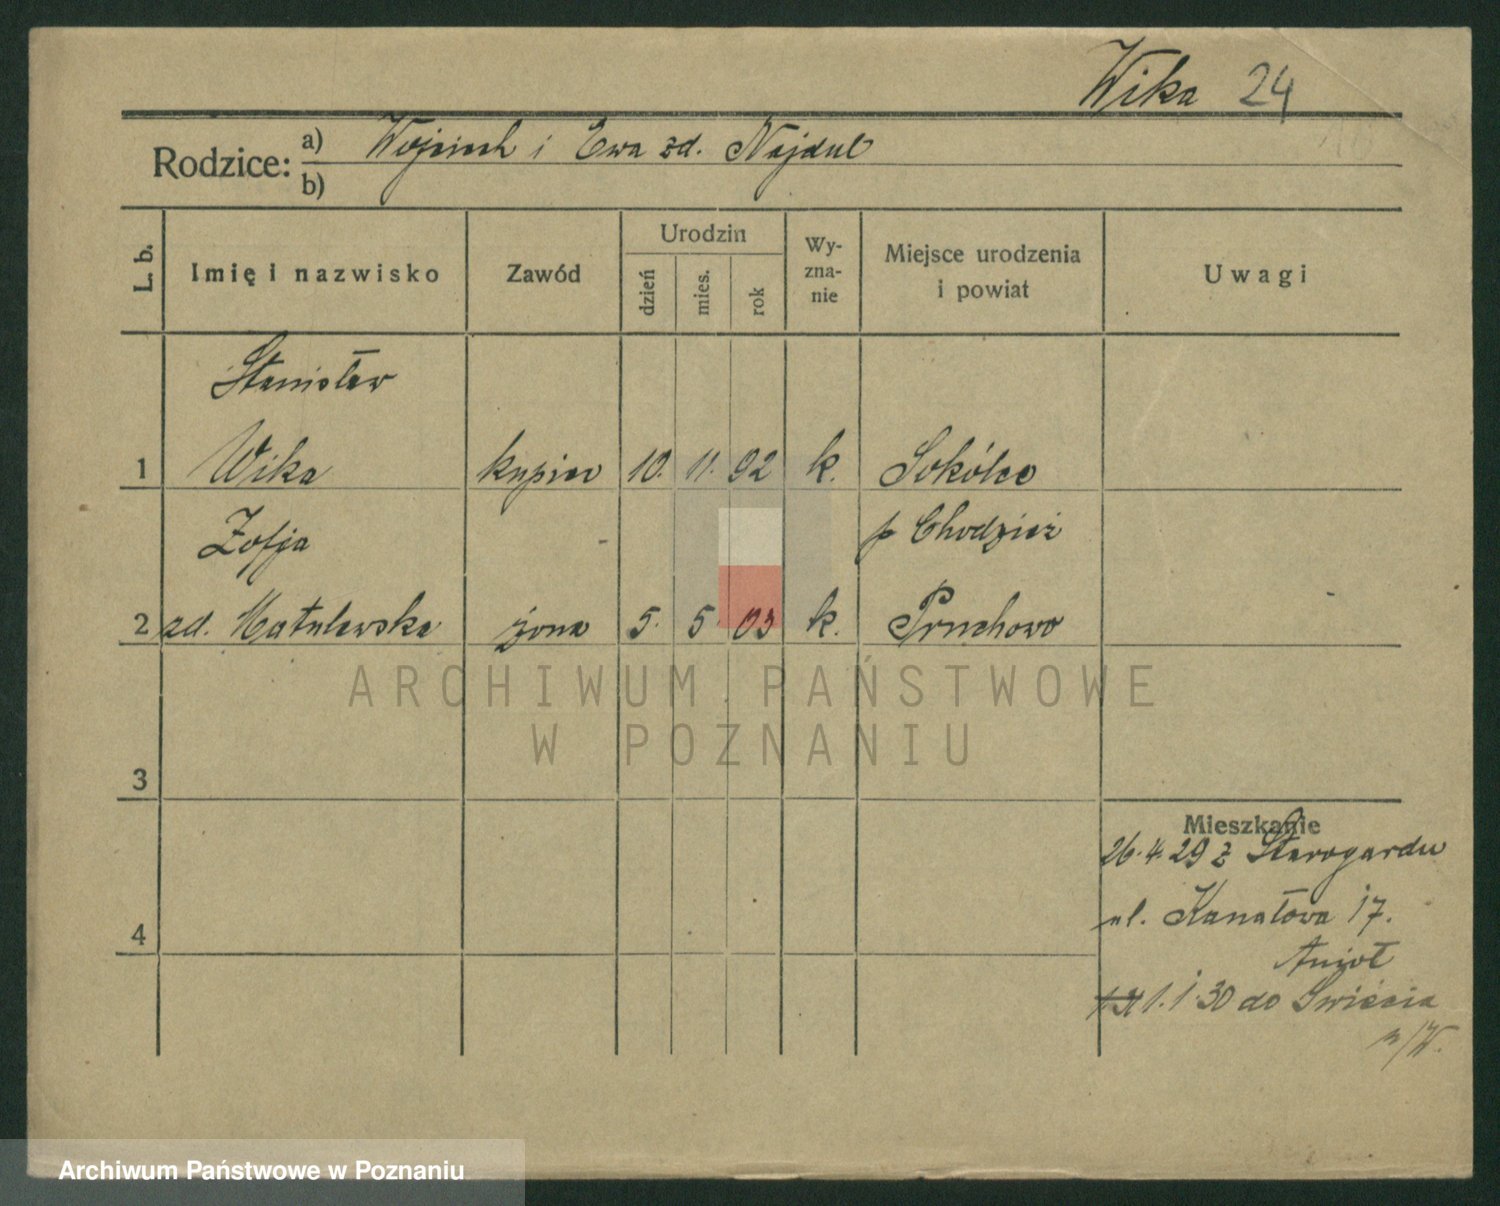 Wika 24
Rodzice: a) Wojciech i Ewa zd. Najdul
b)
L. b. Imię i nazwisko Zawód Urodzin dzień mies. rok Wy-zna-nie Miejsce urodzenia i powiat Uwagi
Stanisław
1 Wika kupiec 10. 11. 92 k. Sokólec
Zofja p Chodzież
2 zd. Matulewska żona 5. 5. 03 k. Pruchowo
ARCHIWUM PAŃSTWOWE
W POZNANIU
3
Mieszkanie
26.4.29 z Starogardu
ul. Kanałowa 17.
4
Anioł
1.1.30 do Świecia
n/W.
Archiwum Państwowe w Poznaniu